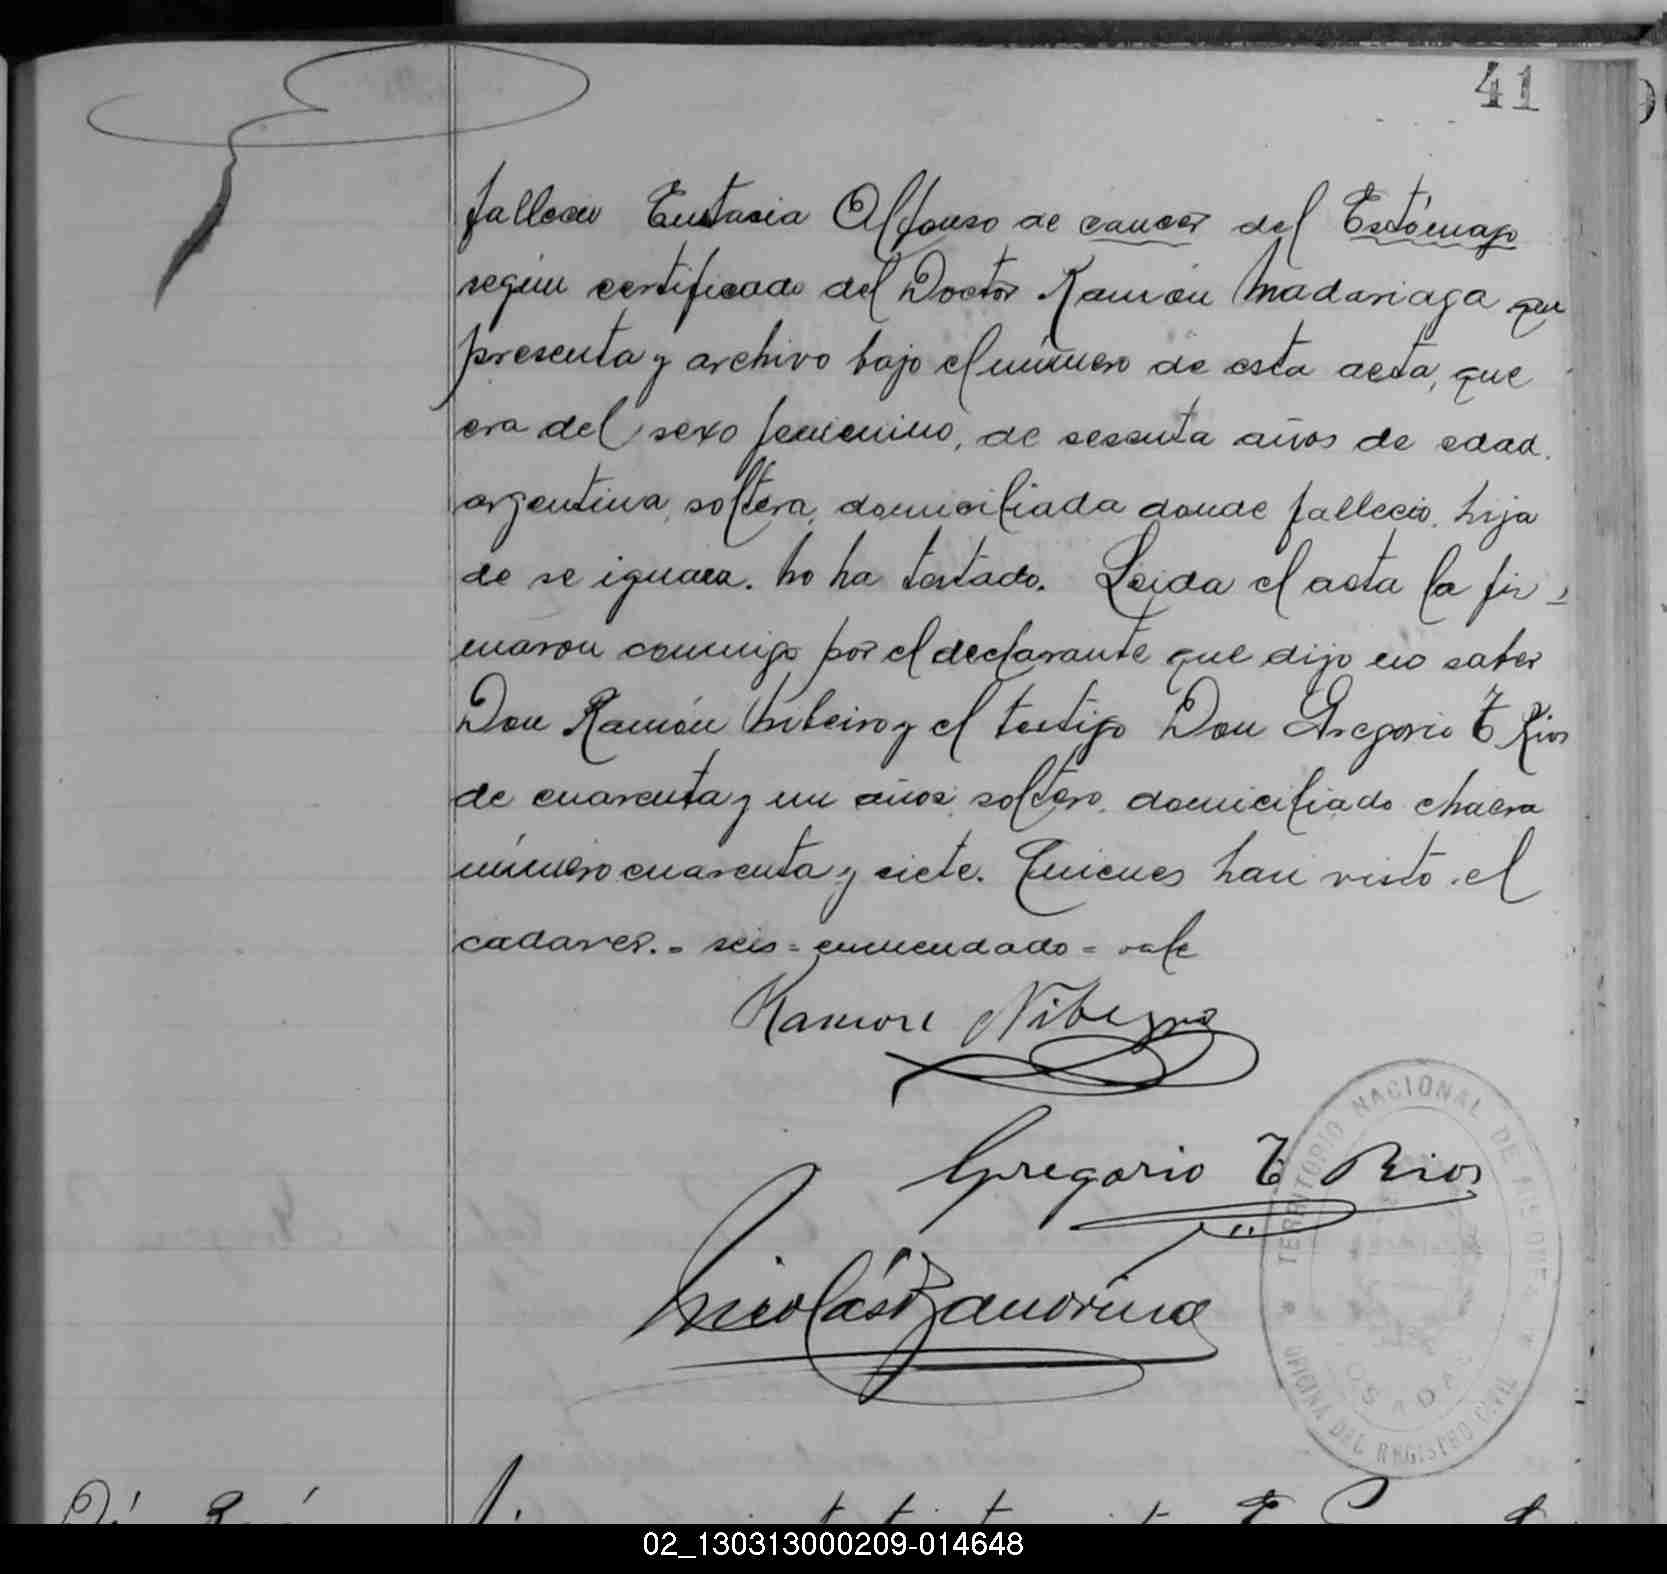 41
fallecio Eustacia Alfonso de cancer del Estómago
según certificado del Doctor Ramón Madariaga que
presenta y archivo bajo el número de esta acta, que
era del sexo femenino, de sesenta años de edad.
argentina, soltera, domiciliada donde fallecio, hija
de se ignora. No ha testado. Leida el acta la fir=
maron conmigo por el declarante que dijo no saber
Don Ramón Nibeiro y el testigo Don Gregorio T Rios
de cuarenta y un años, soltero, domiciliado chacra
número cuarenta y siete. Quienes han visto el
cadaver.= seis = enmendado = vale
Ramon Nibeyro
Gregorio T Rios
TERRITORIO NACIONAL DE MISIONES
Nicolás
POSADAS
OFICINA DEL REGISTRO CIVIL
02_130313000209-014648